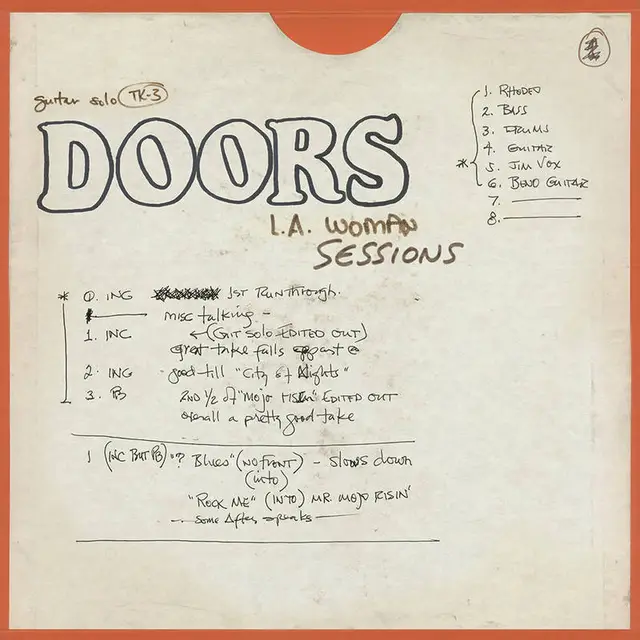 guitar solo TK-3
DOORS
L.A. WOMAN
SESSIONS
1. RHODES
2. BASS
3. DRUMS
4. GUITAR
* 5. JIM VOX
6. BEND GUITAR
7.
8.
* 0. INC 1ST RUNThrough.
misc talking -
1. INC ←(GIT SOLO EDITED OUT)
great take falls apart @
2. ING good till "City of Nights"
3. PB 2ND 1/2 of "MOJO RISIN" EDITED OUT
overall a pretty good take
1 (INC BUT PB) "? Blues" (NO FRONT) - slows down
(into)
"ROCK ME" (INTO) MR. MOJO RISIN'
some After speaks